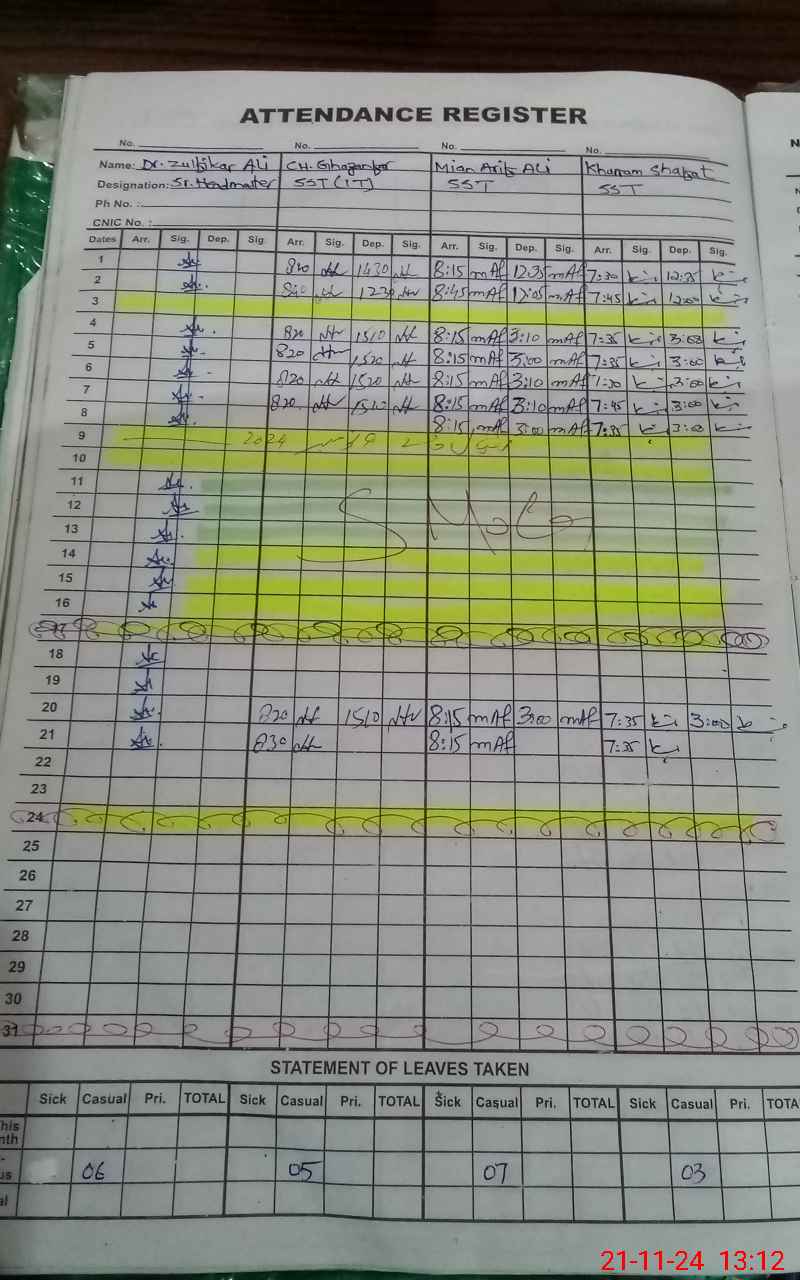 ATTENDANCE REGISTER
No. No. No. No.
Name: Dr. Zulfikar Ali CH. Ghazanfar Mian Arif Ali Khurram Shafqat
Designation: Sr. Headmaster SST (IT) SST SST
Ph No. :
CNIC No. :
Dates Arr. Sig. Dep. Sig. Arr. Sig. Dep. Sig. Arr. Sig. Dep. Sig. Arr. Sig. Dep. Sig.
1 820 1430 8:15 mAf 12:35 mAf 7:30 12:35
2 840 1230 8:45 mAf 12:05 mAf 7:45 12:00
3
4 820 1510 8:15 mAf 3:10 mAf 7:35 3:00
5 820 1520 8:15 mAf 3:00 mAf 7:35 3:00
6 820 1520 8:15 mAf 3:10 mAf 7:30 3:00
7 820 1510 8:15 mAf 3:10 mAf 7:45 3:00
8 8:15 mAf 3:00 mAf 7:35 3:00
9 2024
10
11
12 SMOG
13
14
15
16
18
19
20 820 1510 8:15 mAf 3:00 mAf 7:35 3:00
21 830 8:15 mAf 7:35
22
23
24
25
26
27
28
29
30
31
STATEMENT OF LEAVES TAKEN
Sick Casual Pri. TOTAL Sick Casual Pri. TOTAL Sick Casual Pri. TOTAL Sick Casual Pri. TOTA
his
nth
us 06 05 07 03
al
21-11-24 13:12